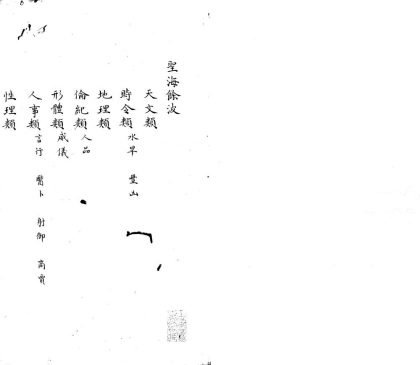 聖海餘波
天文類
時令類 水旱 豊山
地理類
倫紀類 人品
形體類 威儀
人事類 言行 醫卜 射御 商賈
性理類